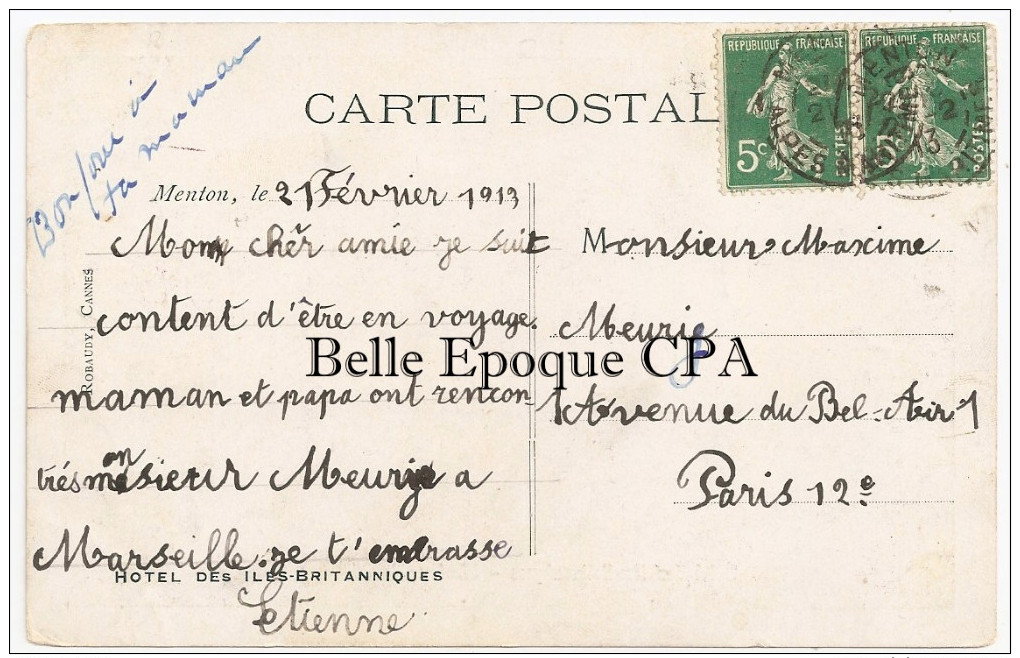 Bonjour à
ta maman
CARTE POSTAL
REPUBLIQUE FRANÇAISE
5c
POSTES
REPUBLIQUE FRANÇAISE
5c
POSTES
Menton, le 21 Février 1913
Mon cher amie je suit
content d'être en voyage.
maman et papa ont rencon-
trés monsieur Meurie a
Marseille. je t'embrasse
Etienne
HOTEL DES ILES-BRITANNIQUES
ROBAUDY, CANNES
Monsieur Maxime
Meurie
1 Avenue du Bel-Air 1
Paris 12e
Belle Epoque CPA